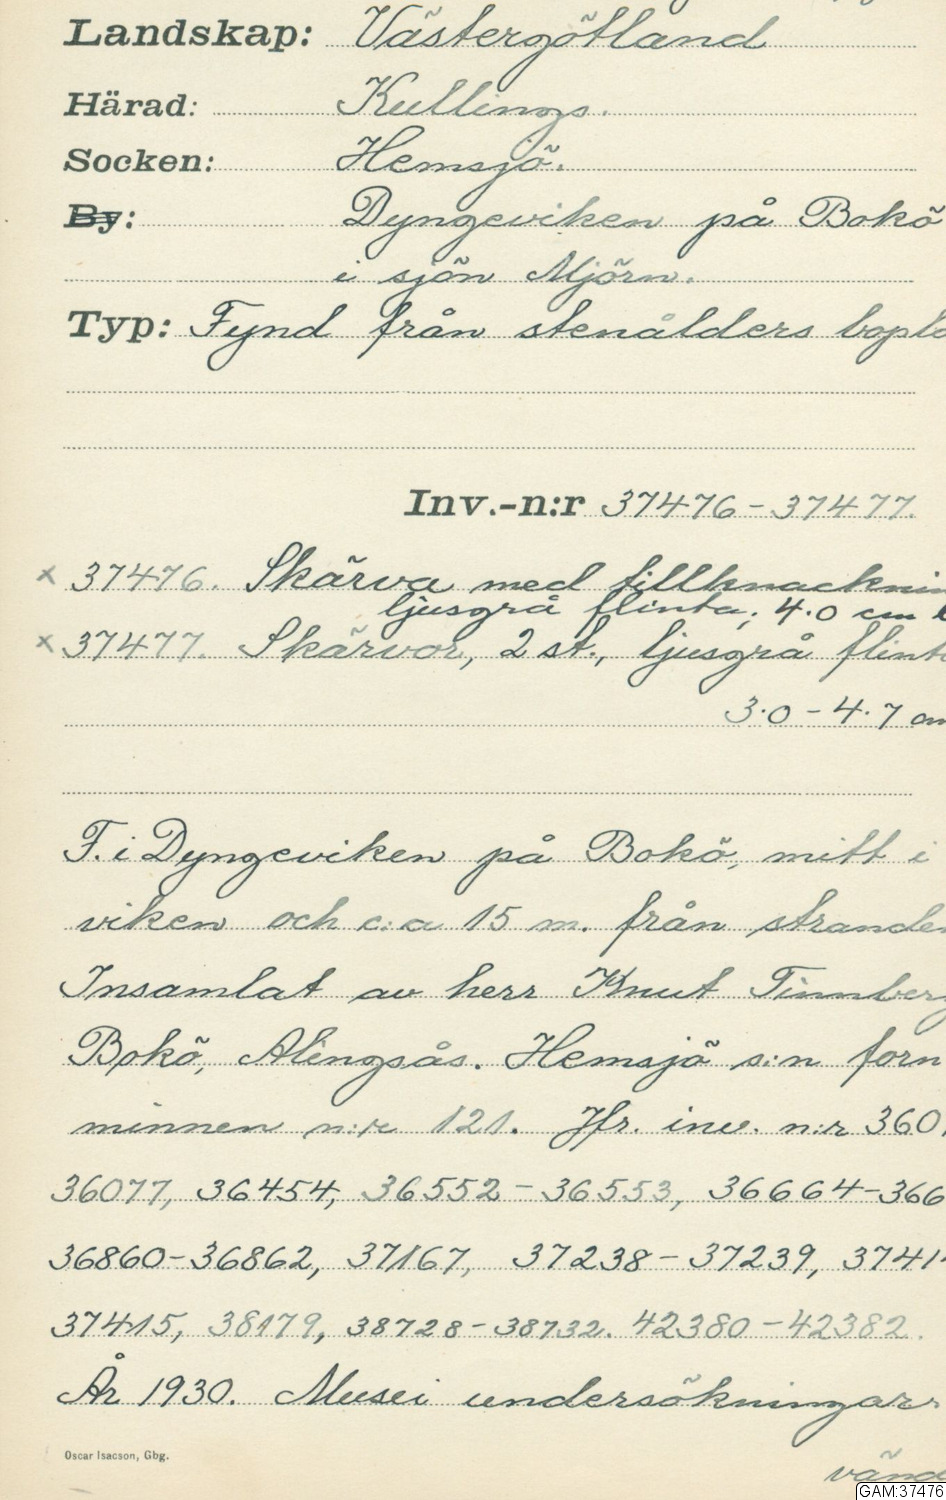 Landskap: Västergötland
Härad: Kullings.
Socken: Hemsjö.
By: Dyngeviken på Bokö
i sjön Mjörn.
Typ: Fynd från stenålders bopla
Inv.-n:r 37476-37477.
x 37476. Skärva med tillknacknin
ljusgrå flinta; 4.0 cm l
x 37477. Skärvor, 2 st., ljusgrå flint
3.0-4.7 cm
F. i Dyngeviken på Bokö, mitt i
viken och c:a 15 m. från stranden
Insamlat av herr Knut Tinnberg
Bokö, Alingsås. Hemsjö s:n forn
minnen n:r 121. Jfr. inv. n:r 360
36077, 36454, 36552-36553, 36664-366
36860-36862, 37167, 37238-37239, 3741
37415, 38179, 38728-38732. 42380-42382.
År 1930. Musei undersökningar
vänd
Oscar Isacson, Gbg.
GAM:37476